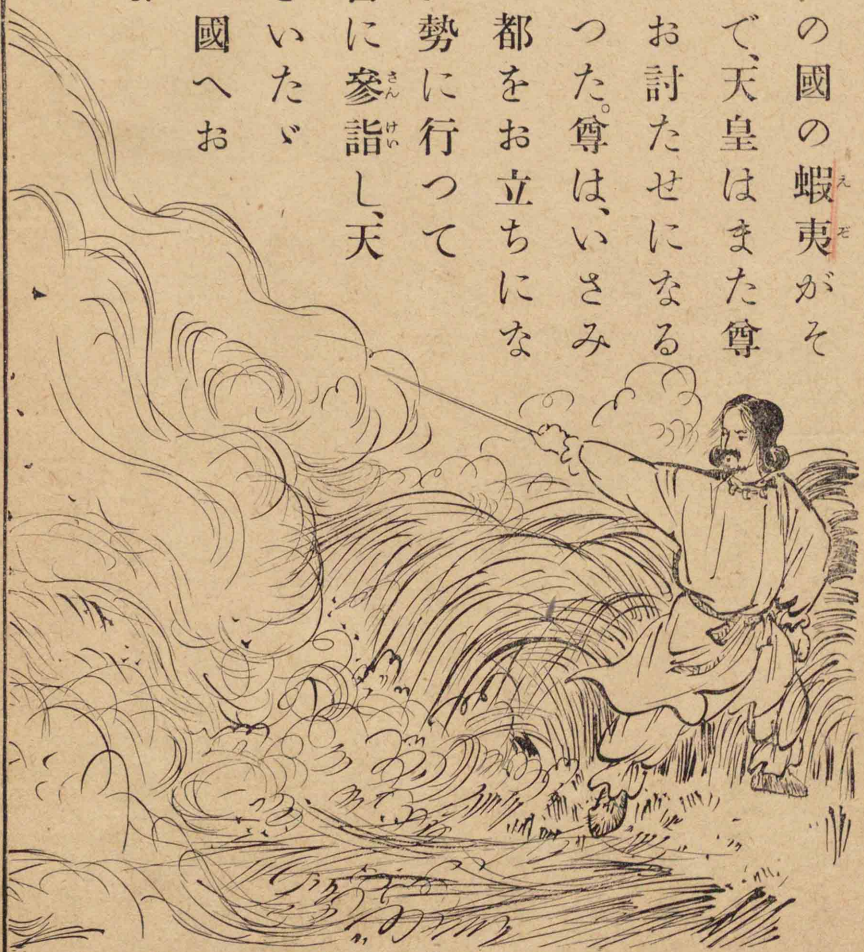 の國の蝦夷がそ
で、天皇はまた尊
お討たせになる
つた。尊は、いさみ
都をお立ちにな
勢に行つて
に參詣し、天
いたゞ
國へお
えぞ
さんけい